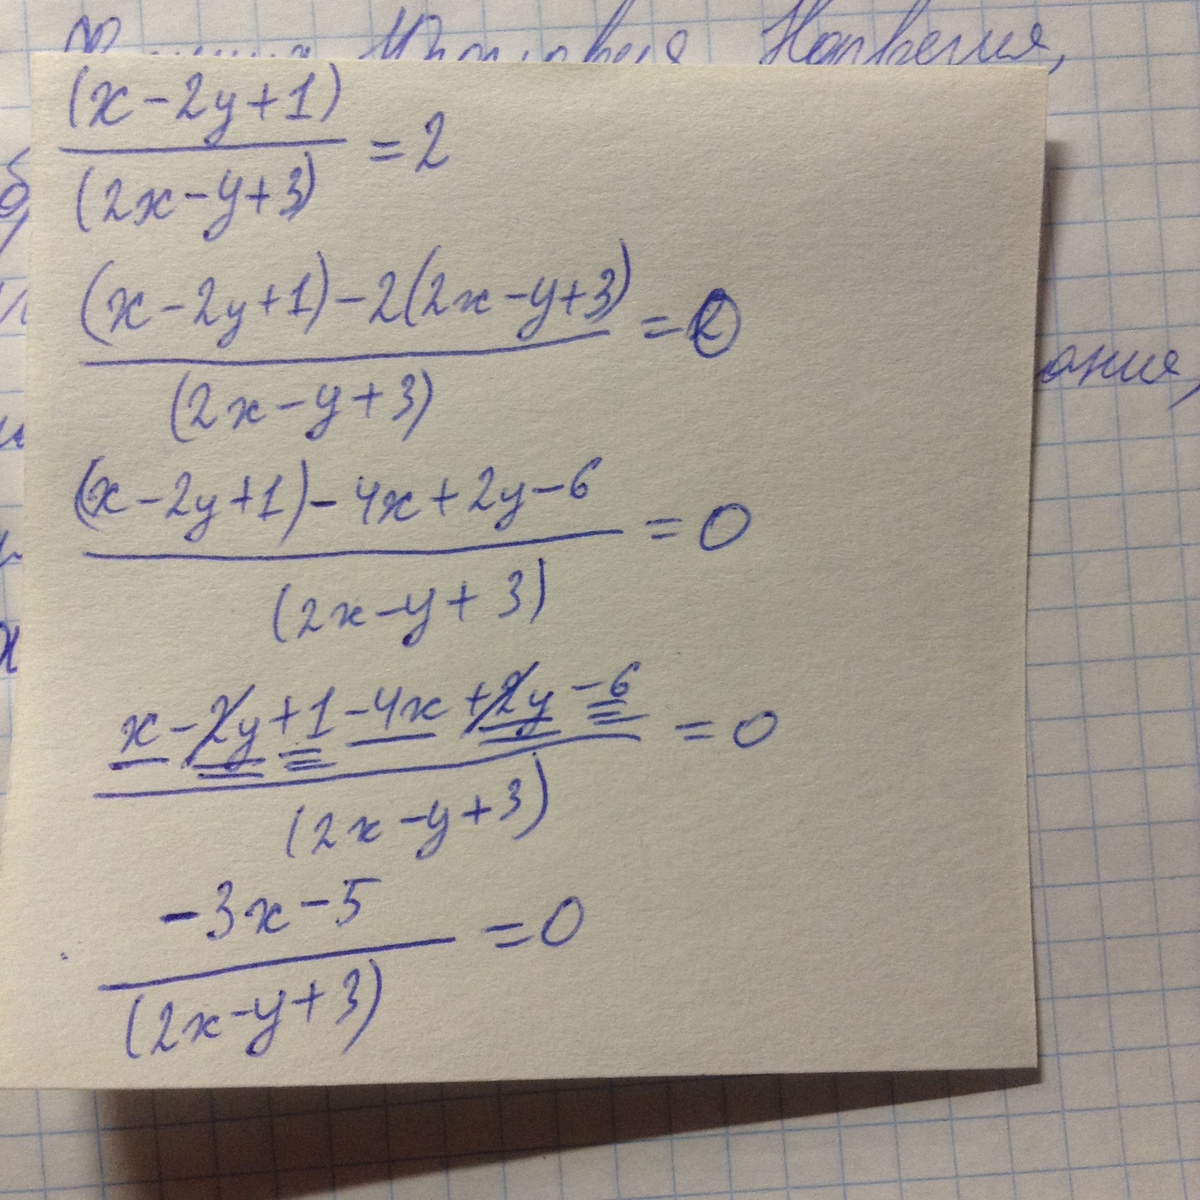 Нарвегия,
ания,
(x-2y+1)/(2x-y+3) = 2
((x-2y+1)-2(2x-y+3))/(2x-y+3) = 0
((x-2y+1)-4x+2y-6)/(2x-y+3) = 0
(x-2y+1-4x+2y-6)/(2x-y+3) = 0
(-3x-5)/(2x-y+3) = 0